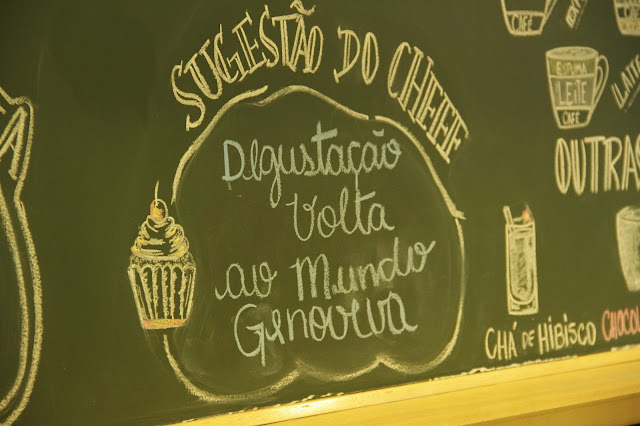 SUGESTÃO DO CHEFE
Degustação
Volta
ao Mundo
Genoveva
CAFÉ
CAFÉ
ESPUMA
LEITE
CAFÉ
LATTE
OUTRAS
CHÁ DE HIBISCO